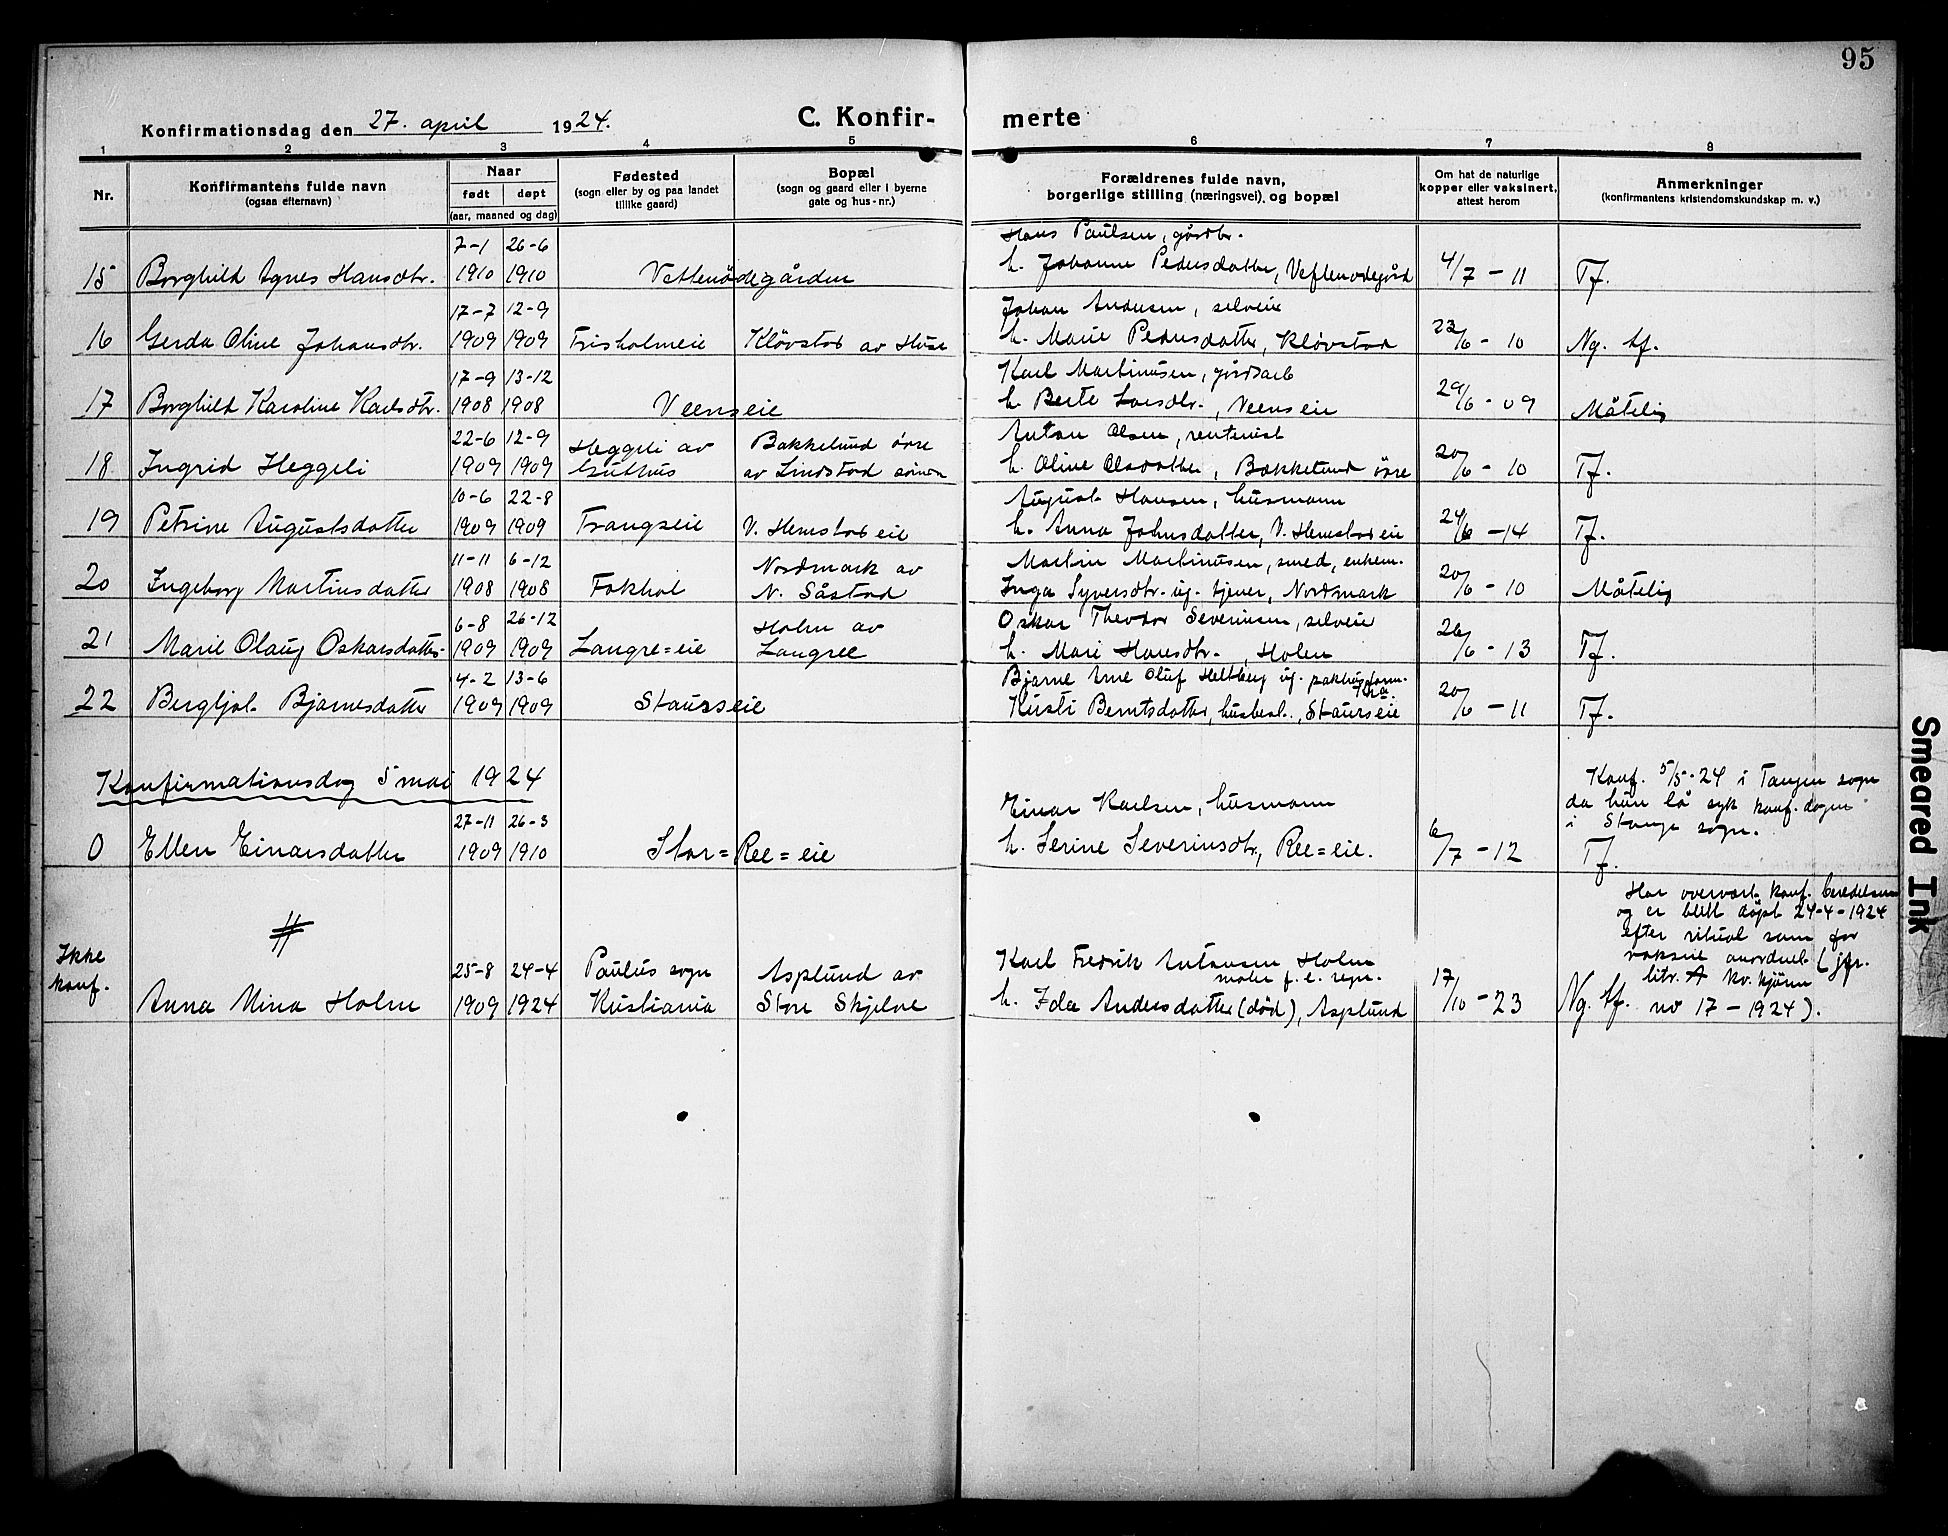 95
Konfirmationsdag den 27. april 1924.
C. Konfir-
merte
1 2 3 4 5 6 7 8
Nr.
Konfirmantens fulde navn
(ogsaa efternavn)
Naar
født døpt
(aar, maaned og dag)
Fødested
(sogn eller by og paa landet
tillike gaard)
Bopæl
(sogn og gaard eller i byerne
gate og hus-nr.)
Forældrenes fulde navn,
borgerlige stilling (næringsvei) og bopæl
Om hat de naturlige
kopper eller vaksinert,
attest herom
Anmerkninger
(konfirmantens kristendomskundskap m. v.)
7-1 26-6 Hans Paulsen, gårdbr.
15 Borghild Agnes Hansdtr. 1910 1910 Vettenødegården h. Johanne Pedersdatter, 4/7 - 11 Tf.
17-7 12-9 Johan Andersen, selveier
16 Gerda Oline Johansdtr. 1909 1909 Frisholmeie Kløvstad av Huse h. Marie Pedersdatter, Kløvstad 22/6 - 10 Ng. tf.
17-9 13-12 Karl Martinusen, gårdsarb
17 Borghild Karoline Karlsdtr. 1908 1908 Veenseie h. Berte Larsdtr., Veenseie 29/6 - 09 Måtelig
22-6 12-9 Heggeli av Bakkelund øvre Anton Olsen, rentenist
18 Ingrid Heggeli 1909 1909 Guthus av Lindstad h. Oline Olsdatter, Bækkelund øvre 20/6 - 10 Tf.
10-6 22-8 August Hansen, husmann
19 Petrine Augustsdatter 1909 1909 Trangseie V. Hemstad eie h. Anna Johnsdatter, V. Hemstad eie 24/6 - 14 Tf.
11-11 6-12 Nordmark av Martin Martinusen, smed, enkem.
20 Ingeborg Martinsdatter 1908 1908 Fokhol N. Såstad Inga Syversdtr. ug. tjener, Nordmark 20/6 - 10 Måtelig
6-8 26-12 Holm av Oskar Theodor Severinsen, selveier
21 Marie Olaug Oskarsdatter 1909 1909 Langre=eie Langree h. Mari Hansdtr., Holen 26/6 - 13 Tf.
4-2 13-6 Bjarne Arne Oluf Heltberg ug.
22 Bergljot Bjarnesdatter 1909 1909 Staurseie Kirsti Berntsdatter, husbest., Staurseie 20/6 - 11 Tf.
Konfirmationsdag 5 mai 1924
Konf. 5/5-24 i Tangen sogn
da hun lå syk konf. dagen
i Stange sogn.
27-11 26-3 Einar Karlsen, husmann
0 Ellen Einarsdatter 1909 1910 Stor=Ree=eie h. Serine Severinsdtr, Ree=eie. 6/7 - 12 Tf.
#
Har overvært konf. beredelsen
og er blitt døpt 24-4-1924
efter ritual som for
voksne anordnet (jfr.
litr. A kv. kjønn
nr 17 - 1924).
Ikke
konf.
25-8 24-4 Paulus sogn Asplund av Karl Fredrik Antonsen Holm
maler f. e. regn.
Anna Mina Holm 1909 1924 Kristiania Store Skjelve h. Ida Andersdatter (død), Asplund 17/10 - 23 Ng. tf.
Smeared Ink